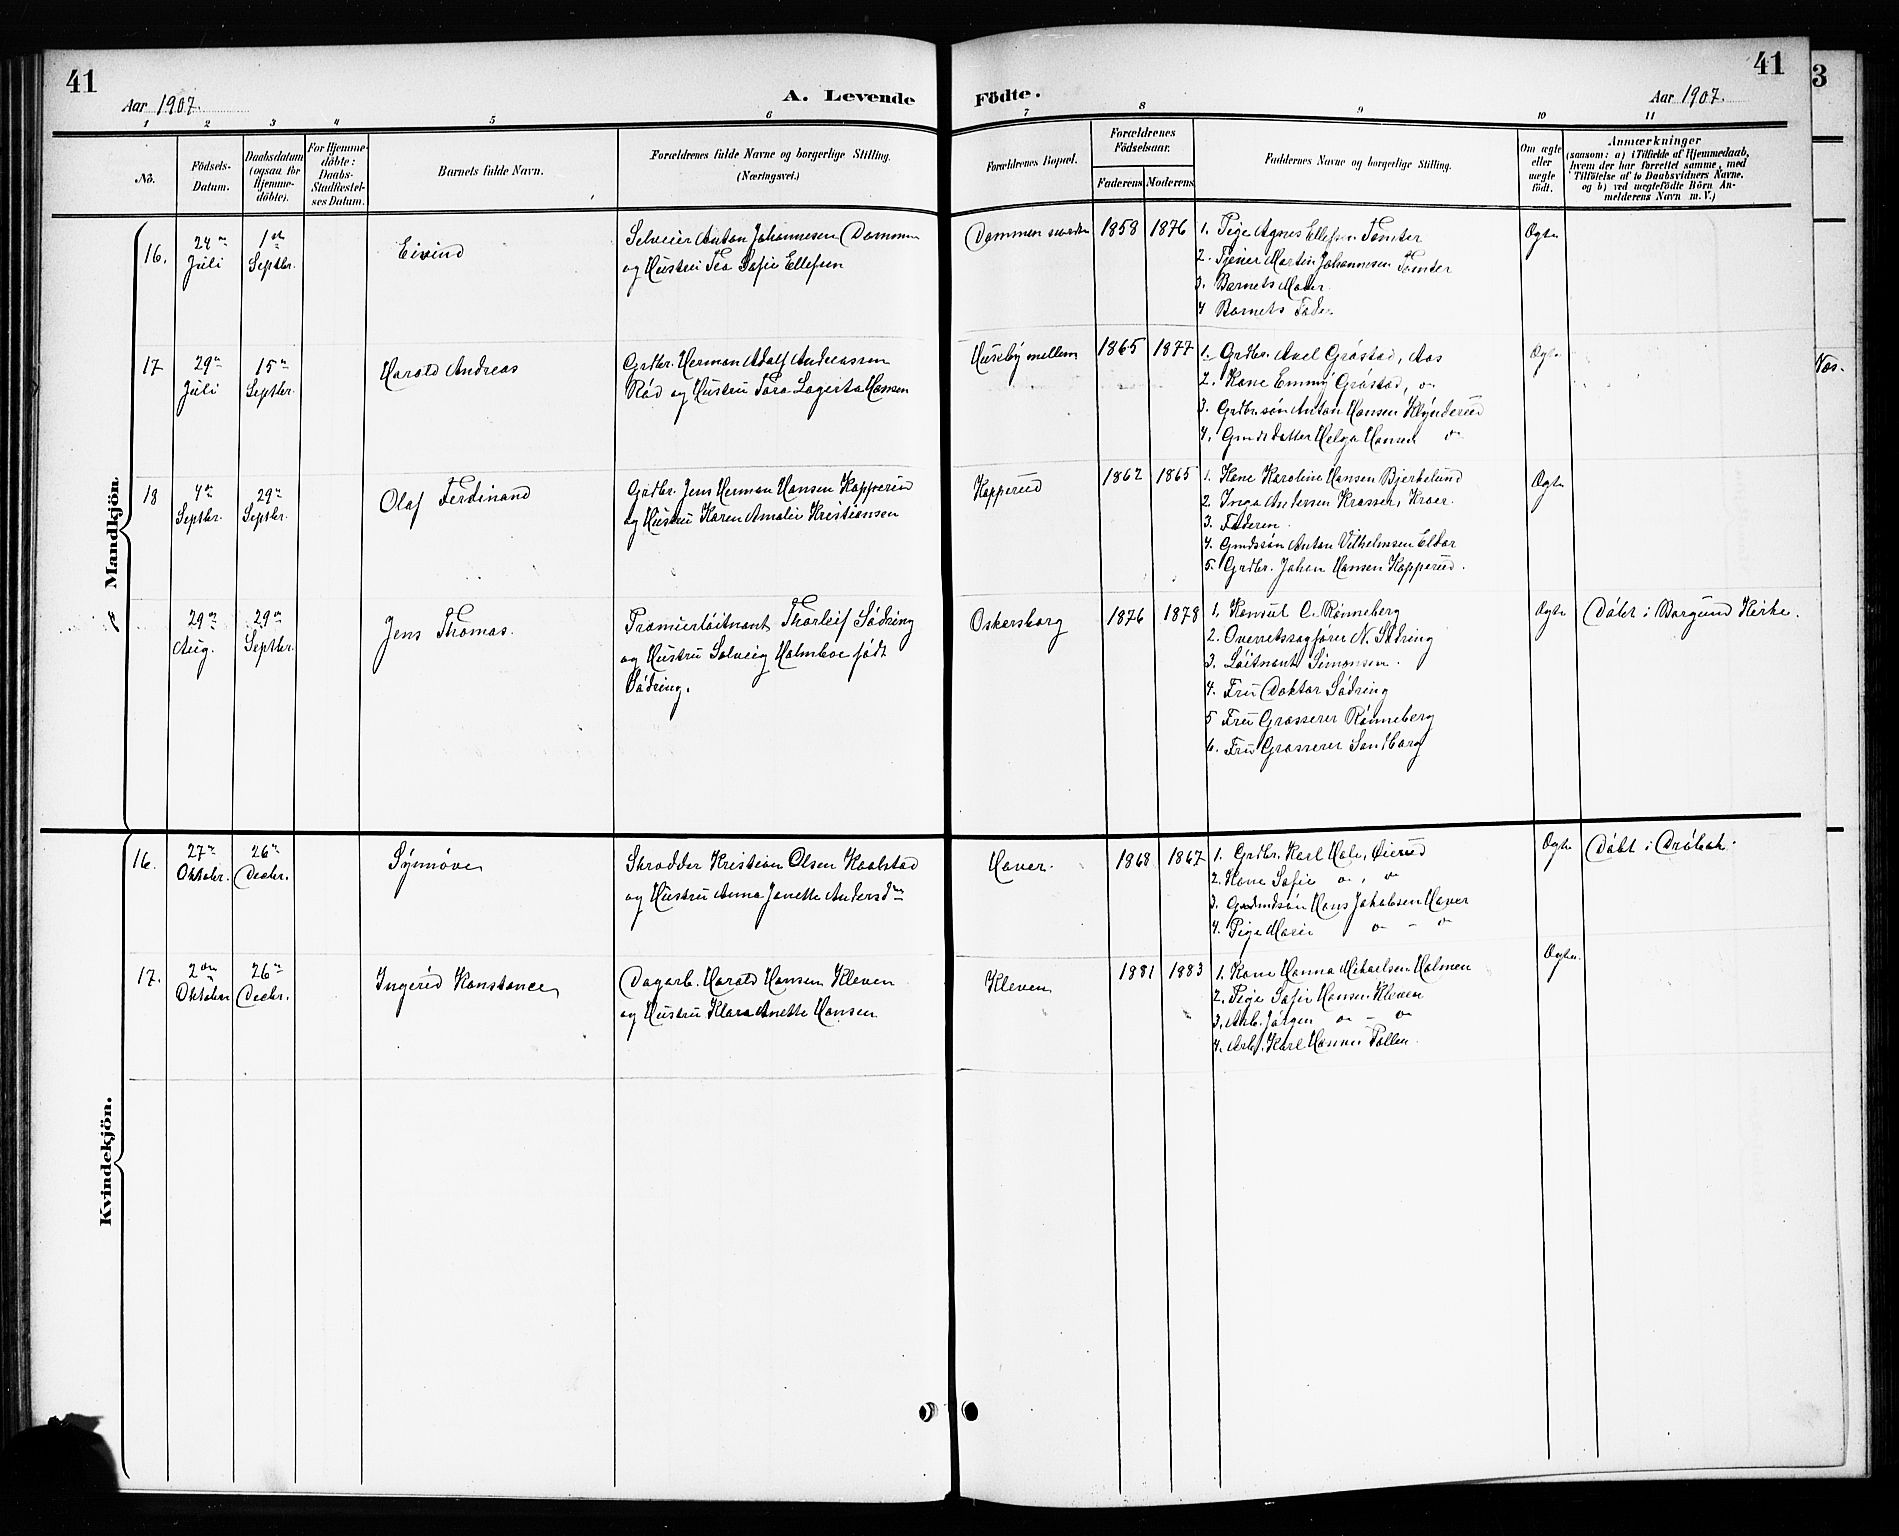 41
Aar 1907.
A. Levende
Födte.
41
Aar 1907.
3
1 2 3 4 5 6 7 8 9 10 11
No.
Födsels-
Datum.
Daabsdatum
(ogsaa for
Hjemme-
döbte).
For Hjemme-
döbte:
Daabs-
Stadfæstel-
ses Datum.
Barnets fulde Navn.
Forældrenes fulde Navne og borgerlige Stilling.
(Næringsvei.)
Forældrenes Bopæl.
Forældrenes
Födselsaar.
Faderens
Moderens
Faddernes Navne og borgerlige Stilling.
Om ægte
eller
uægte
födt.
Anmærkninger
(saasom: a) i Tilfælde af Hjemmedaab,
hvem der har forrettet samme, med
Tilföielse af to Daabsvidners Navne.
og b) ved uægtefödte Börn An-
melderens Navn m. V.)
Mandkjön.
16.
24de
Juli
1ste
Septbr.
Eivind
Selveier Anton Johannesen Dammen
og Hustru Tea Sofie Ellefsen
Dammen
1858
1876
1. Pige Agnes Ellefsen Tomter
2. Tjener Martin Johannesen Tomter
3. Barnets Moder
4 Barnets Fader
Ægte
17
29de
Juli
15de
Septbr.
Harald Andreas
Grdbr. Herman Adolf Andreassen
Rød og Hustru Tora Lagerta Hansen
Huseby mellem
1865
1877
1. Grdbr. Axel Gråstad, Aas
2. Kone Emmy Gråstad, "
3. Grdbr.søn Anton Hansen Klønderud
4. Grdr.datter Helga Hansen "
Ægte
Nos.
18
4de
Septbr.
29de
Septbr.
Olaf Ferdinand
Grdbr. Jens Herman Hansen Kopperud
og Hustru Karen Amalie Kristiansen
Kopperud
1862
1865
1. Kone Karoline Hansen Bjerkelund
2. Inga Andersen Krosser, Kroer.
3. Faderen.
4. Grdssøn Anton Vilhelmsen Eldor
5. Grdbr. Johan Hansen Kopperud.
Ægte
29de
Aug.
29de
Septbr.
Jens Thomas.
Premierløitnant Thorleif Sødring
og Hustru Solveig Holmboe født
Sødring.
Oskarsborg
1876
1878
1. Konsul C. Rønneberg
2. Overretssagfører N. Sødring
3. Løitnant Simonsen.
4. Fru Doktor Sødring
5 Fru Grosserer Rønneberg
6. Fru Grosserer Sandborg
Ægte
Døbt i Borgund Kirke.
Kvindekjön.
16.
27de
Oktobr.
26de
Decbr.
Synnøve
Skrædder Kristian Olsen Kaalstad
og Hustru Anna Janette Andersdtr
Haver.
1868
1867
1. Grdbr. Karl Hole, Øierud
2. Kone Sofie " , "
3. Grdmdsøn Hans Jakobsen Haver
4. Pige Marie " - "
Ægte
Døbt i Drøbak.
17.
2den
Oktober
26de
Decbr.
Ingerid Konstance
Dagarb. Harald Hansen Kleven
og Hustru Klara Anette Hansen
Kleven
1881
1883
1. Kone Hanna Mikaelsen Holmen
2. Pige Sofie Hansen Kleven
3. Arb. Jørgen " - "
4. Arb. Karl Hansen Pollen.
Ægte